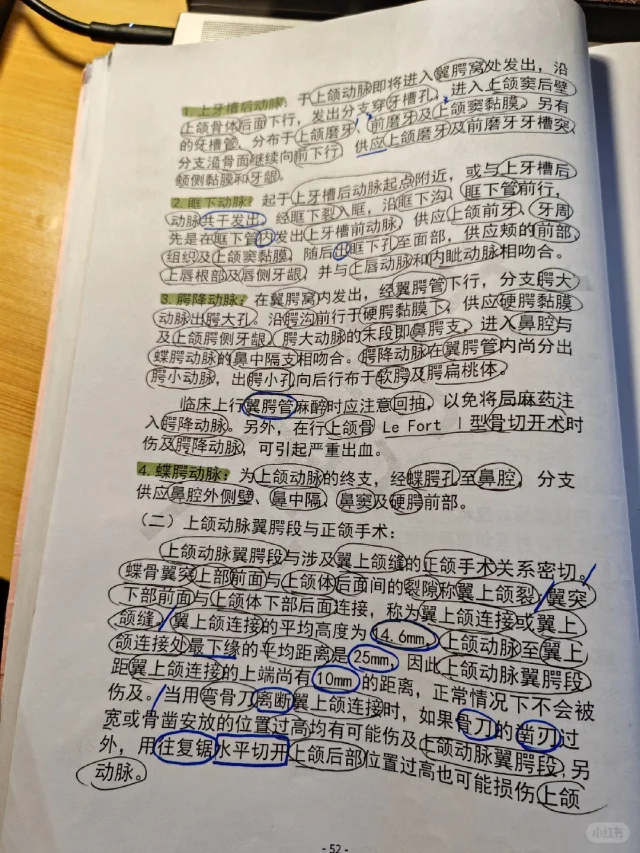 1. 上牙槽后动脉：于上颌动脉即将进入翼腭窝处发出，沿
上颌骨体后面下行，发出分支穿牙槽孔，进入上颌窦后壁
的牙槽管，分布于上颌磨牙、前磨牙及上颌窦黏膜。另有
分支沿骨面继续向前下行，供应上颌磨牙及前磨牙牙槽突、
颊侧黏膜和牙龈。
2. 眶下动脉：起于上牙槽后动脉起点附近，或与上牙槽后
动脉共干发出，经眶下裂入眶，沿眶下沟、眶下管前行，
先是在眶下管内发出上牙槽前动脉，供应上颌前牙、牙周
组织及上颌窦黏膜，随后出眶下孔至面部，供应颊的前部、
上唇根部及唇侧牙龈，并与上唇动脉和内眦动脉相吻合。
3. 腭降动脉：在翼腭窝内发出，经翼腭管下行，分支腭大
动脉出腭大孔。沿腭沟前行于硬腭黏膜下，供应硬腭黏膜
及上颌腭侧牙龈，腭大动脉的末段即鼻腭支，进入鼻腔与
蝶腭动脉的鼻中隔支相吻合。腭降动脉在翼腭管内尚分出
腭小动脉，出腭小孔向后行布于软腭及腭扁桃体。
临床上行翼腭管麻醉时应注意回抽，以免将局麻药注
入腭降动脉。另外，在行上颌骨 Le Fort Ⅰ型骨切开术时
伤及腭降动脉，可引起严重出血。
4. 蝶腭动脉：为上颌动脉的终支，经蝶腭孔至鼻腔，分支
供应鼻腔外侧壁、鼻中隔、鼻窦及硬腭前部。
（二）上颌动脉翼腭段与正颌手术：
上颌动脉翼腭段与涉及翼上颌缝的正颌手术关系密切。
蝶骨翼突上部前面与上颌体后面间的裂隙称翼上颌裂，翼突
下部前面与上颌体下部后面连接，称为翼上颌连接或翼上
颌缝。翼上颌连接的平均高度为14.6mm，上颌动脉至翼上
颌连接处最下缘的平均距离是25mm，因此上颌动脉翼腭段
距翼上颌连接的上端尚有10mm的距离，正常情况下不会被
伤及。当用弯骨刀离断翼上颌连接时，如果骨刀的凿刃过
宽或骨凿安放的位置过高均有可能伤及上颌动脉翼腭段；另
外，用往复锯水平切开上颌后部位置过高也可能损伤上颌
动脉。
- 52 -
小红书